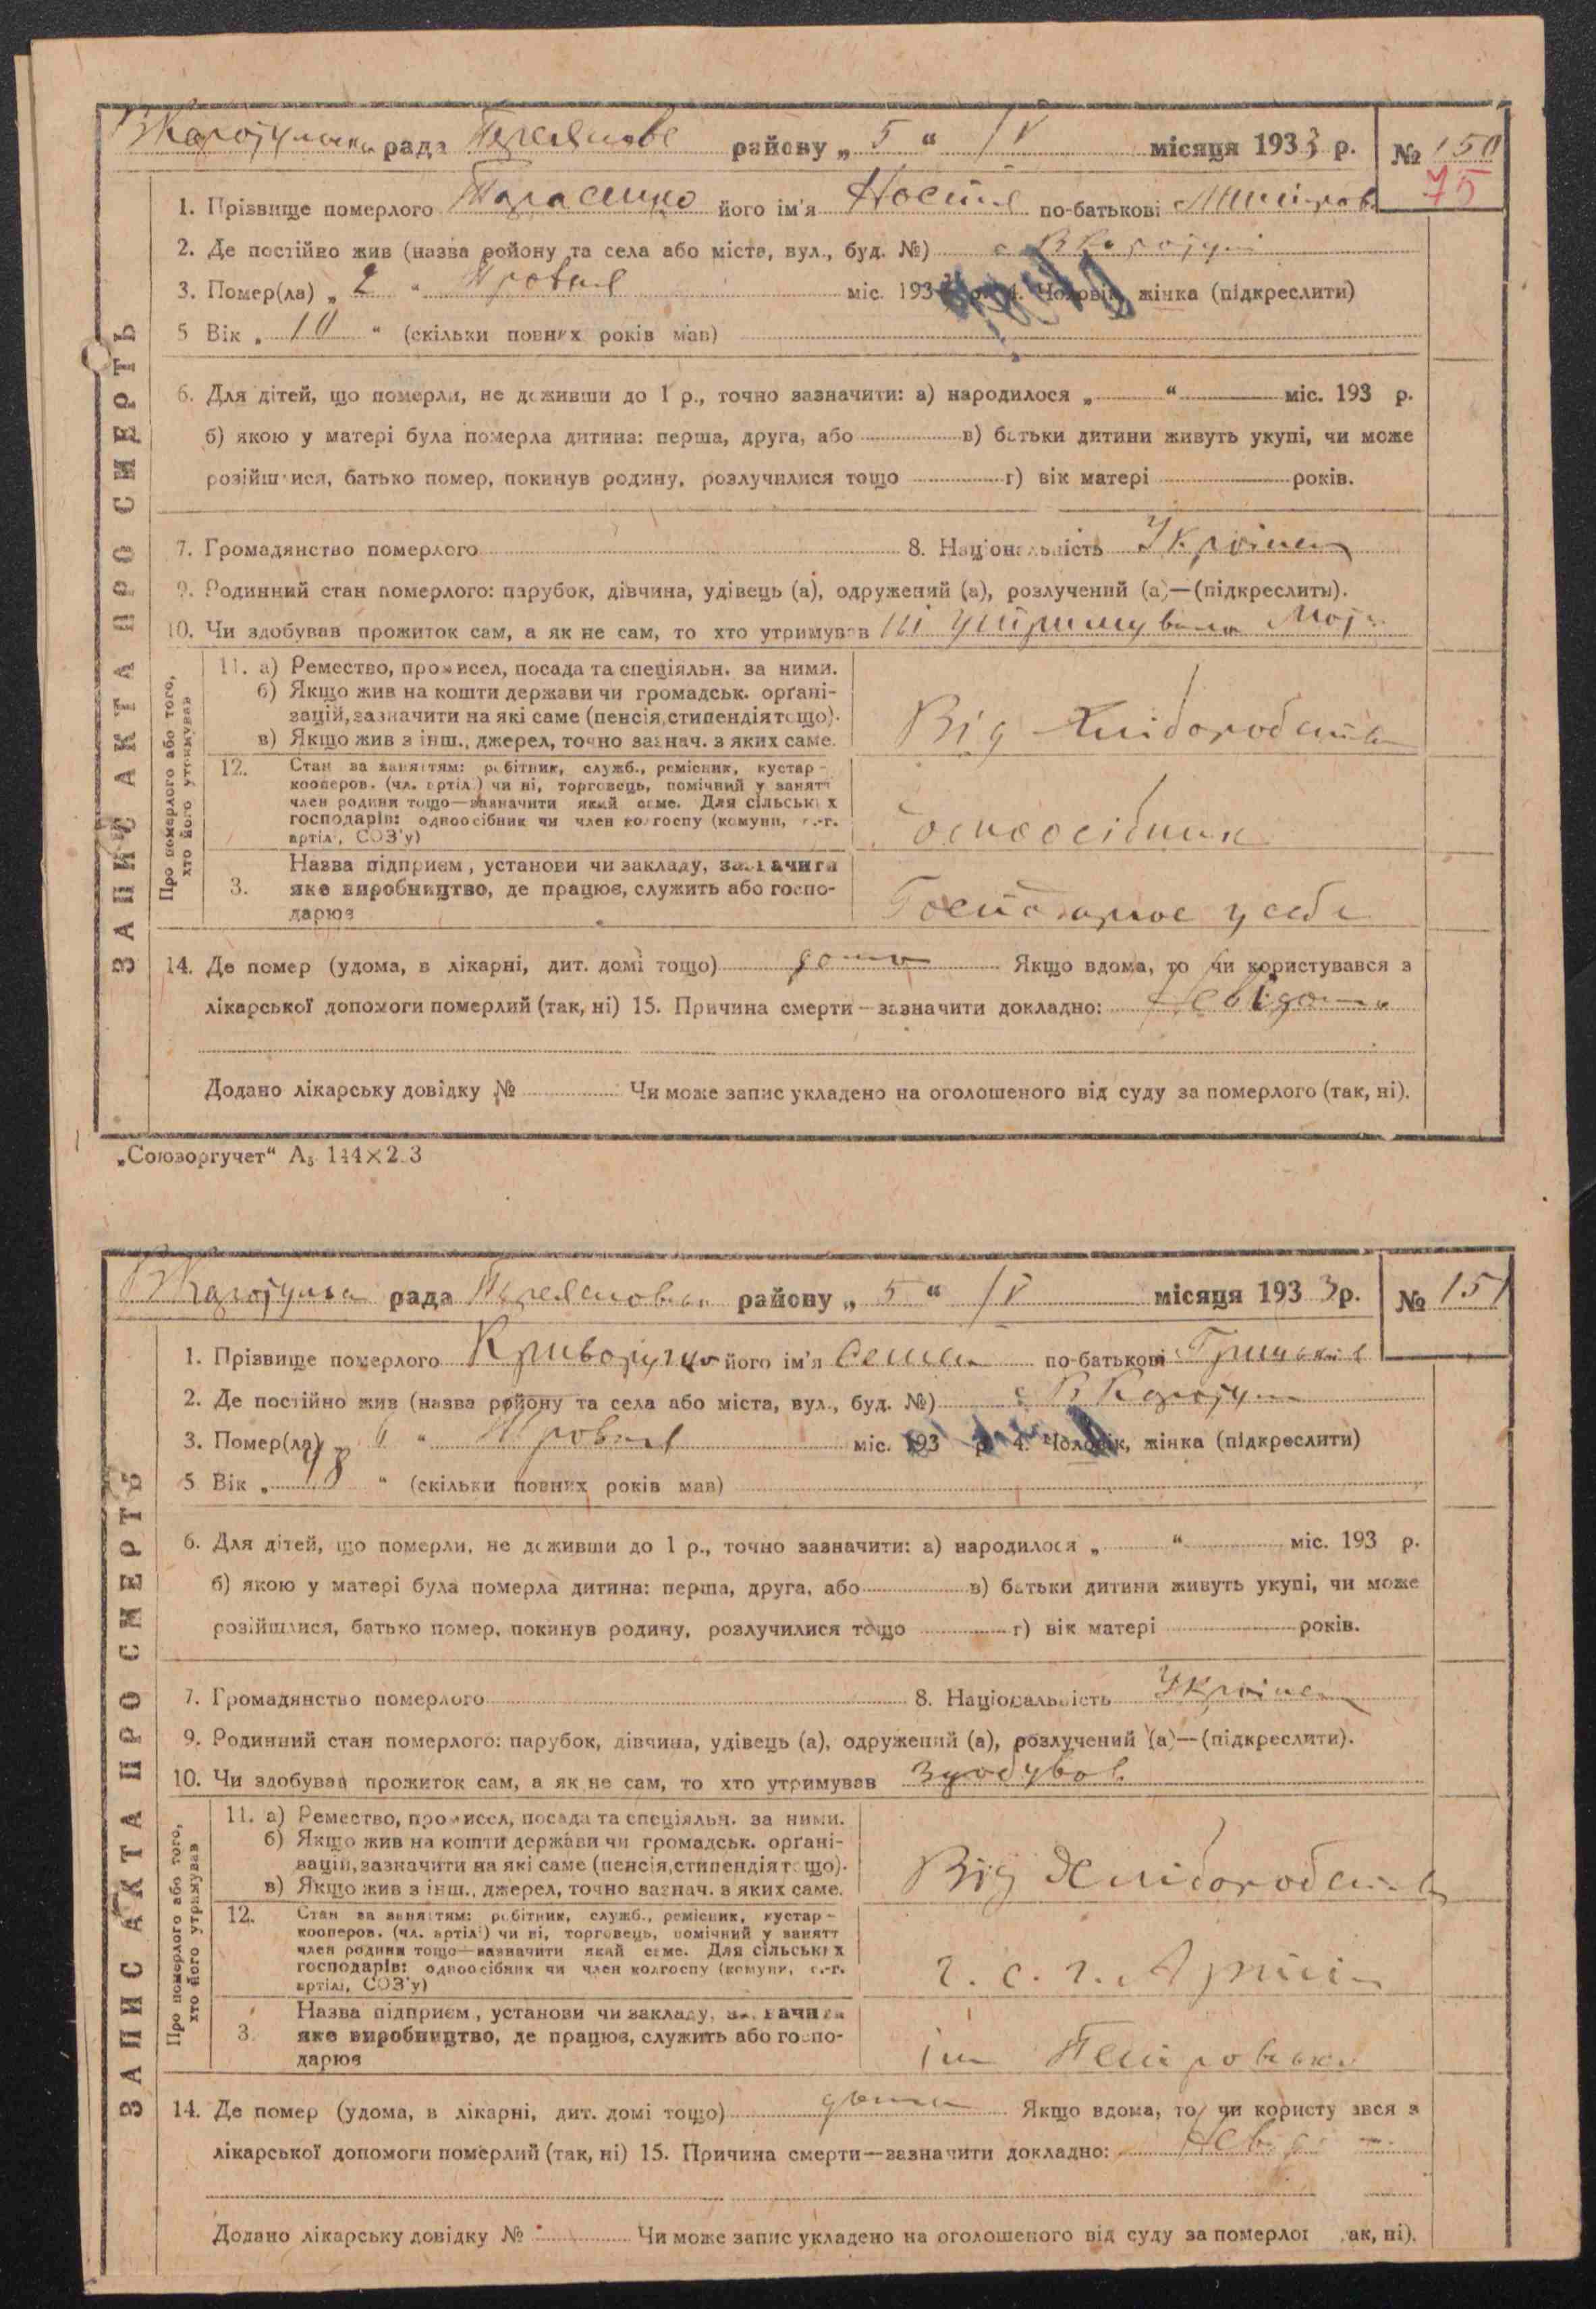 ЗАПИС АКТА ПРО СМЕРТЬ
рада району „ 5 “ IV місяця 1933 р. № 150
75
1. Прізвище померлого Тарасенко його ім'я по-батькові
2. Де постійно жив (назва району та села або міста, вул., буд. №) с
3. Помер(ла) „ 2 “ міс. 193 4. Чоловік, жінка (підкреслити)
5 Вік „ 10 “ (скільки повних років мав)
6. Для дітей, що померли, не доживши до 1 р., точно зазначити: а) народилося „ “ міс. 193 р.
б) якою у матері була померла дитина: перша, друга, або в) батьки дитини живуть укупі, чи може
розійшлися, батько помер, покинув родину, розлучилися тощо г) вік матері років.
7. Громадянство померлого 8. Національність Україн
9. Родинний стан померлого: парубок, дівчина, удівець (а), одружений (а), розлучений (а)—(підкреслити).
10. Чи здобував прожиток сам, а як не сам, то хто утримував
Про померлого або того, хто його утримував
11. а) Ремество, промисел, посада та спеціяльн. за ними.
б) Якщо жив на кошти держави чи громадськ. орґані-
зацій, зазначити на які саме (пенсія, стипендія тощо).
в) Якщо жив з інш., джерел, точно зазнач. з яких саме.
Від Хліборобства
12. Стан за заняттям: робітник, служб., ремісник, кустар-
кооперов. (чл. артіл.) чи ні, торговець, помічний у занятт
член родини тощо—зазначити який саме. Для сільських
господарів: одноосібник чи член колгоспу (комуни, с.-г.
артілі, СОЗ'у)
одноосібник
3. Назва підприєм, установи чи закладу, зазначити
яке виробництво, де працює, служить або госпо-
дарює
Господарює у себе
14. Де помер (удома, в лікарні, дит. домі тощо) дома Якщо вдома, то чи користувався з
лікарської допомоги померлий (так, ні) 15. Причина смерти—зазначити докладно: Невідома
Додано лікарську довідку № Чи може запис укладено на оголошеного від суду за померлого (так, ні).
„Союзоргучет“ А₅ 144×2.3
ЗАПИС АКТА ПРО СМЕРТЬ
рада району „ 5 “ IV місяця 1933 р. № 151
1. Прізвище померлого Криворучко його ім'я Семен по-батькові
2. Де постійно жив (назва району та села або міста, вул., буд. №) с
3. Помер(ла) „ “ міс. 193 р 4. Чоловік, жінка (підкреслити)
5 Вік „ 48 “ (скільки повних років мав)
6. Для дітей, що померли, не доживши до 1 р., точно зазначити: а) народилося „ “ міс. 193 р.
б) якою у матері була померла дитина: перша, друга, або в) батьки дитини живуть укупі, чи може
розійшлися, батько помер, покинув родину, розлучилися тощо г) вік матері років.
7. Громадянство померлого 8. Національність Україн
9. Родинний стан померлого: парубок, дівчина, удівець (а), одружений (а), розлучений (а)—(підкреслити).
10. Чи здобував прожиток сам, а як не сам, то хто утримував Здобував
Про померлого або того, хто його утримував
11. а) Ремество, промисел, посада та спеціяльн. за ними.
б) Якщо жив на кошти держави чи громадськ. орґані-
зацій, зазначити на які саме (пенсія, стипендія тощо).
в) Якщо жив з інш., джерел, точно зазнач. з яких саме.
Від Хліборобства
12. Стан за заняттям: робітник, служб., ремісник, кустар-
кооперов. (чл. артіл.) чи ні, торговець, помічний у занятт
член родини тощо—зазначити який саме. Для сільських
господарів: одноосібник чи член колгоспу (комуни, с.-г.
артілі, СОЗ'у)
ч. с. г. Артілі
3. Назва підприєм, установи чи закладу, зазначити
яке виробництво, де працює, служить або госпо-
дарює
ім Петровськ
14. Де помер (удома, в лікарні, дит. домі тощо) дома Якщо вдома, то чи користувався з
лікарської допомоги померлий (так, ні) 15. Причина смерти—зазначити докладно:
Додано лікарську довідку № Чи може запис укладено на оголошеного від суду за померлог ак, ні).